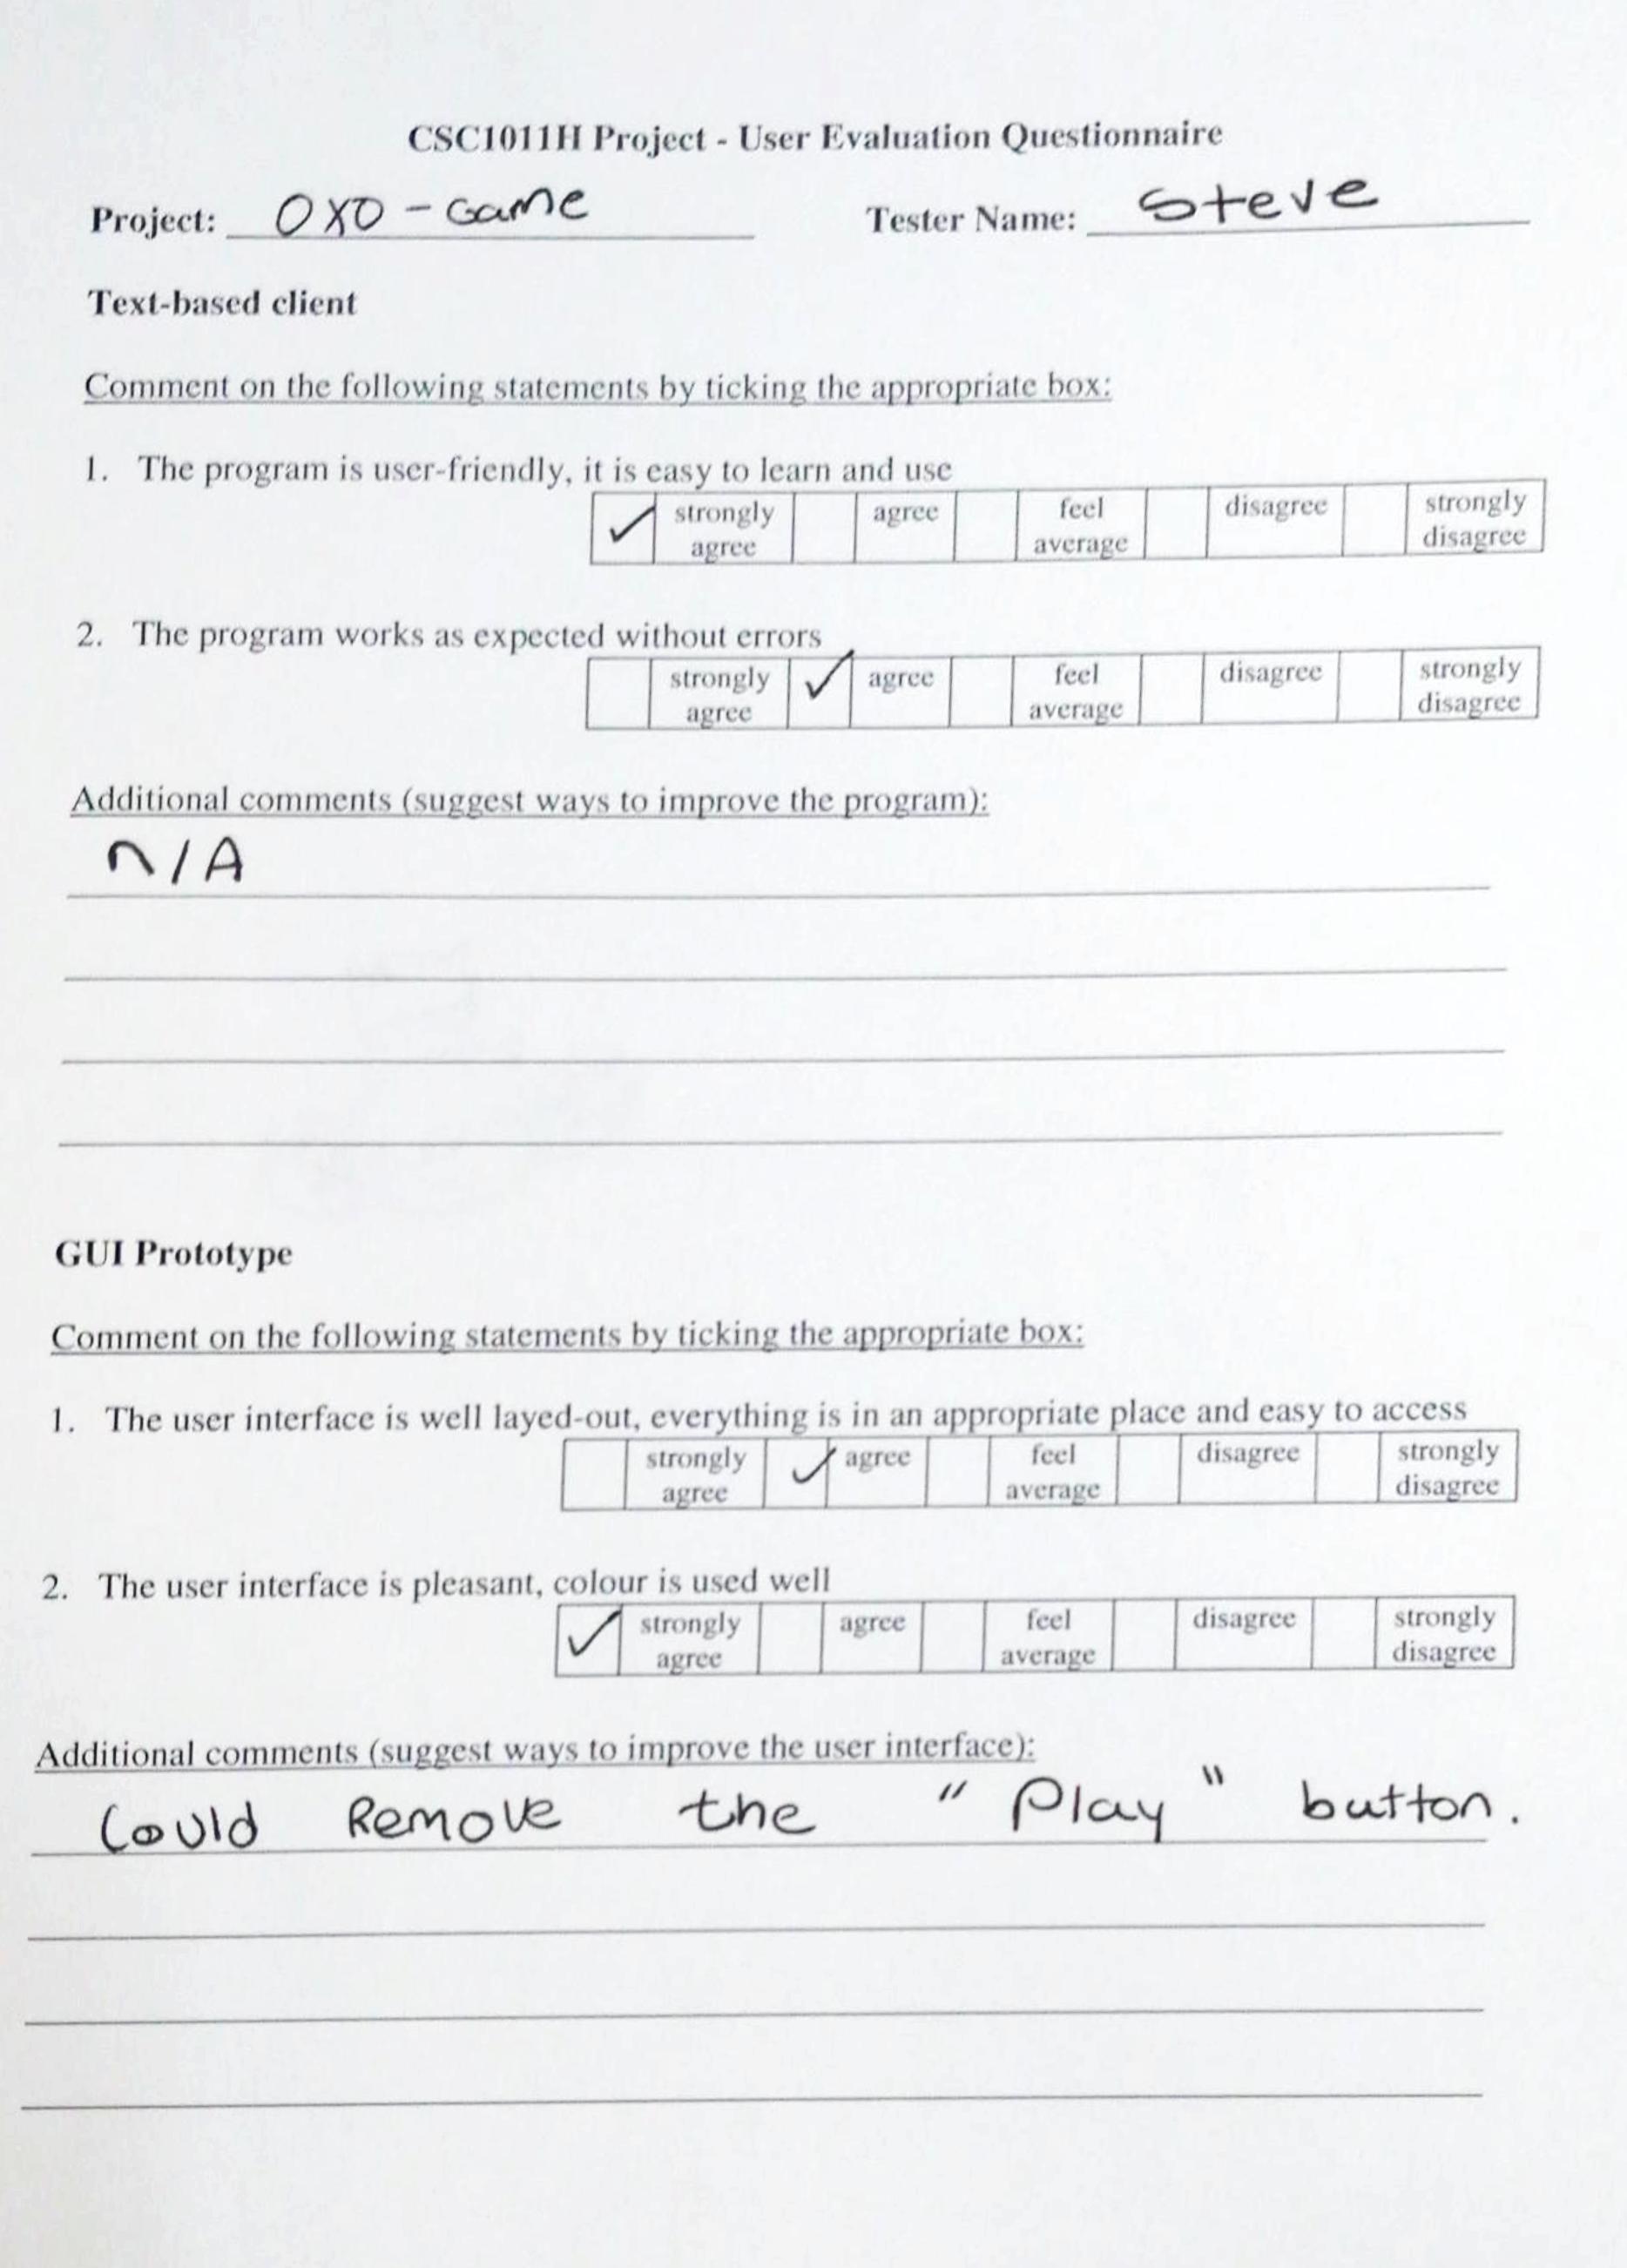 CSC1011H Project - User Evaluation Questionnaire
Project: OXO - Game Tester Name: Steve
Text-based client
Comment on the following statements by ticking the appropriate box:
1. The program is user-friendly, it is easy to learn and use
✓ strongly agree agree feel average disagree strongly disagree
2. The program works as expected without errors
strongly agree ✓ agree feel average disagree strongly disagree
Additional comments (suggest ways to improve the program):
N/A
GUI Prototype
Comment on the following statements by ticking the appropriate box:
1. The user interface is well layed-out, everything is in an appropriate place and easy to access
strongly agree ✓ agree feel average disagree strongly disagree
2. The user interface is pleasant, colour is used well
✓ strongly agree agree feel average disagree strongly disagree
Additional comments (suggest ways to improve the user interface):
Could Remove the "Play" button.